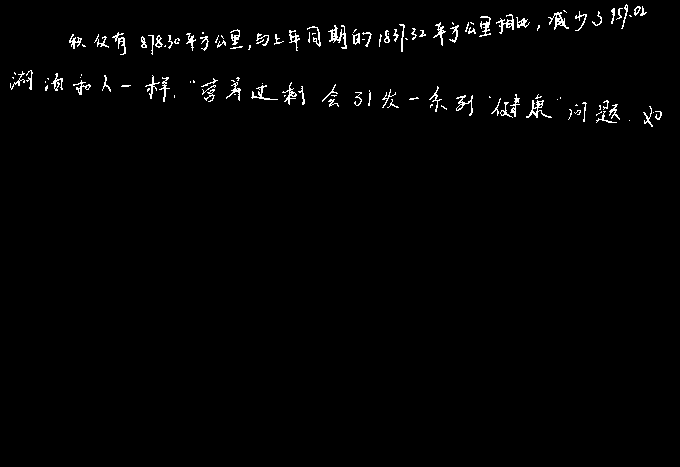 积仅有878.30平方公里,与上年同期的1837.32平方公里相比,减少了959.02
湖泊和人一样,“营养过剩会引发一系列“健康”问题.如